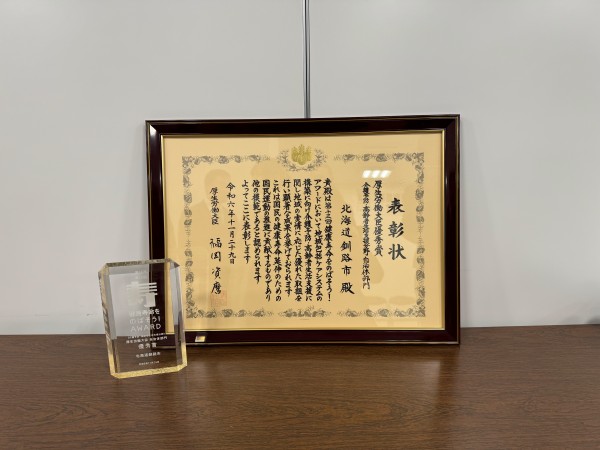 表彰状
厚生労働大臣優秀賞
介護予防・高齢者生活支援分野 自治体部門
北海道釧路市 殿
貴殿は第十三回健康寿命をのばそう！
アワードにおいて地域包括ケアシステムの
構築に向け介護予防・高齢者生活支援に
関し地域の実情に応じた優れた取組を
行い顕著な成果を挙げておられます
これは国民の健康寿命延伸のための
国民運動の推進に貢献するものであり
他の模範であると認められます
よってここに表彰します
令和六年十一月二十九日
厚生労働大臣 福岡 資麿
寿
健康寿命を
のばそう！
AWARD
優秀賞